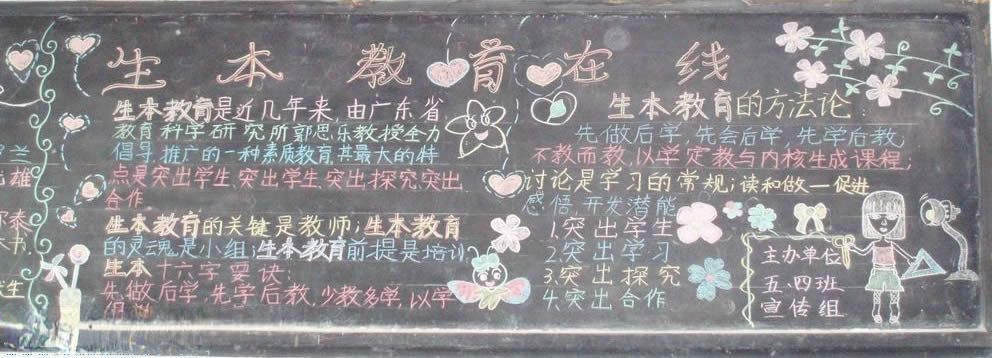 生本教育在线
生本教育是近几年来,由广东省
教育科学研究所郭思乐教授全力
倡导,推广的一种素质教育,其最大的特
点是突出学生、突出学生、突出探究、突出
合作
生本教育的关键是教师;生本教育
的灵魂是小组;生本教育前提是培训;
生本十六字要诀:
先做后学,先学后教,少教多学,以学
生本教育的方法论:
先做后学 先会后学 先学后教
不教而教,以学定教与内核生成课程;
讨论是学习的常规;读和做——促进
感悟 开发潜能
1.突出学生
2.突出学习
3.突出探究
4.突出合作
主办单位
五.四班
宣传组